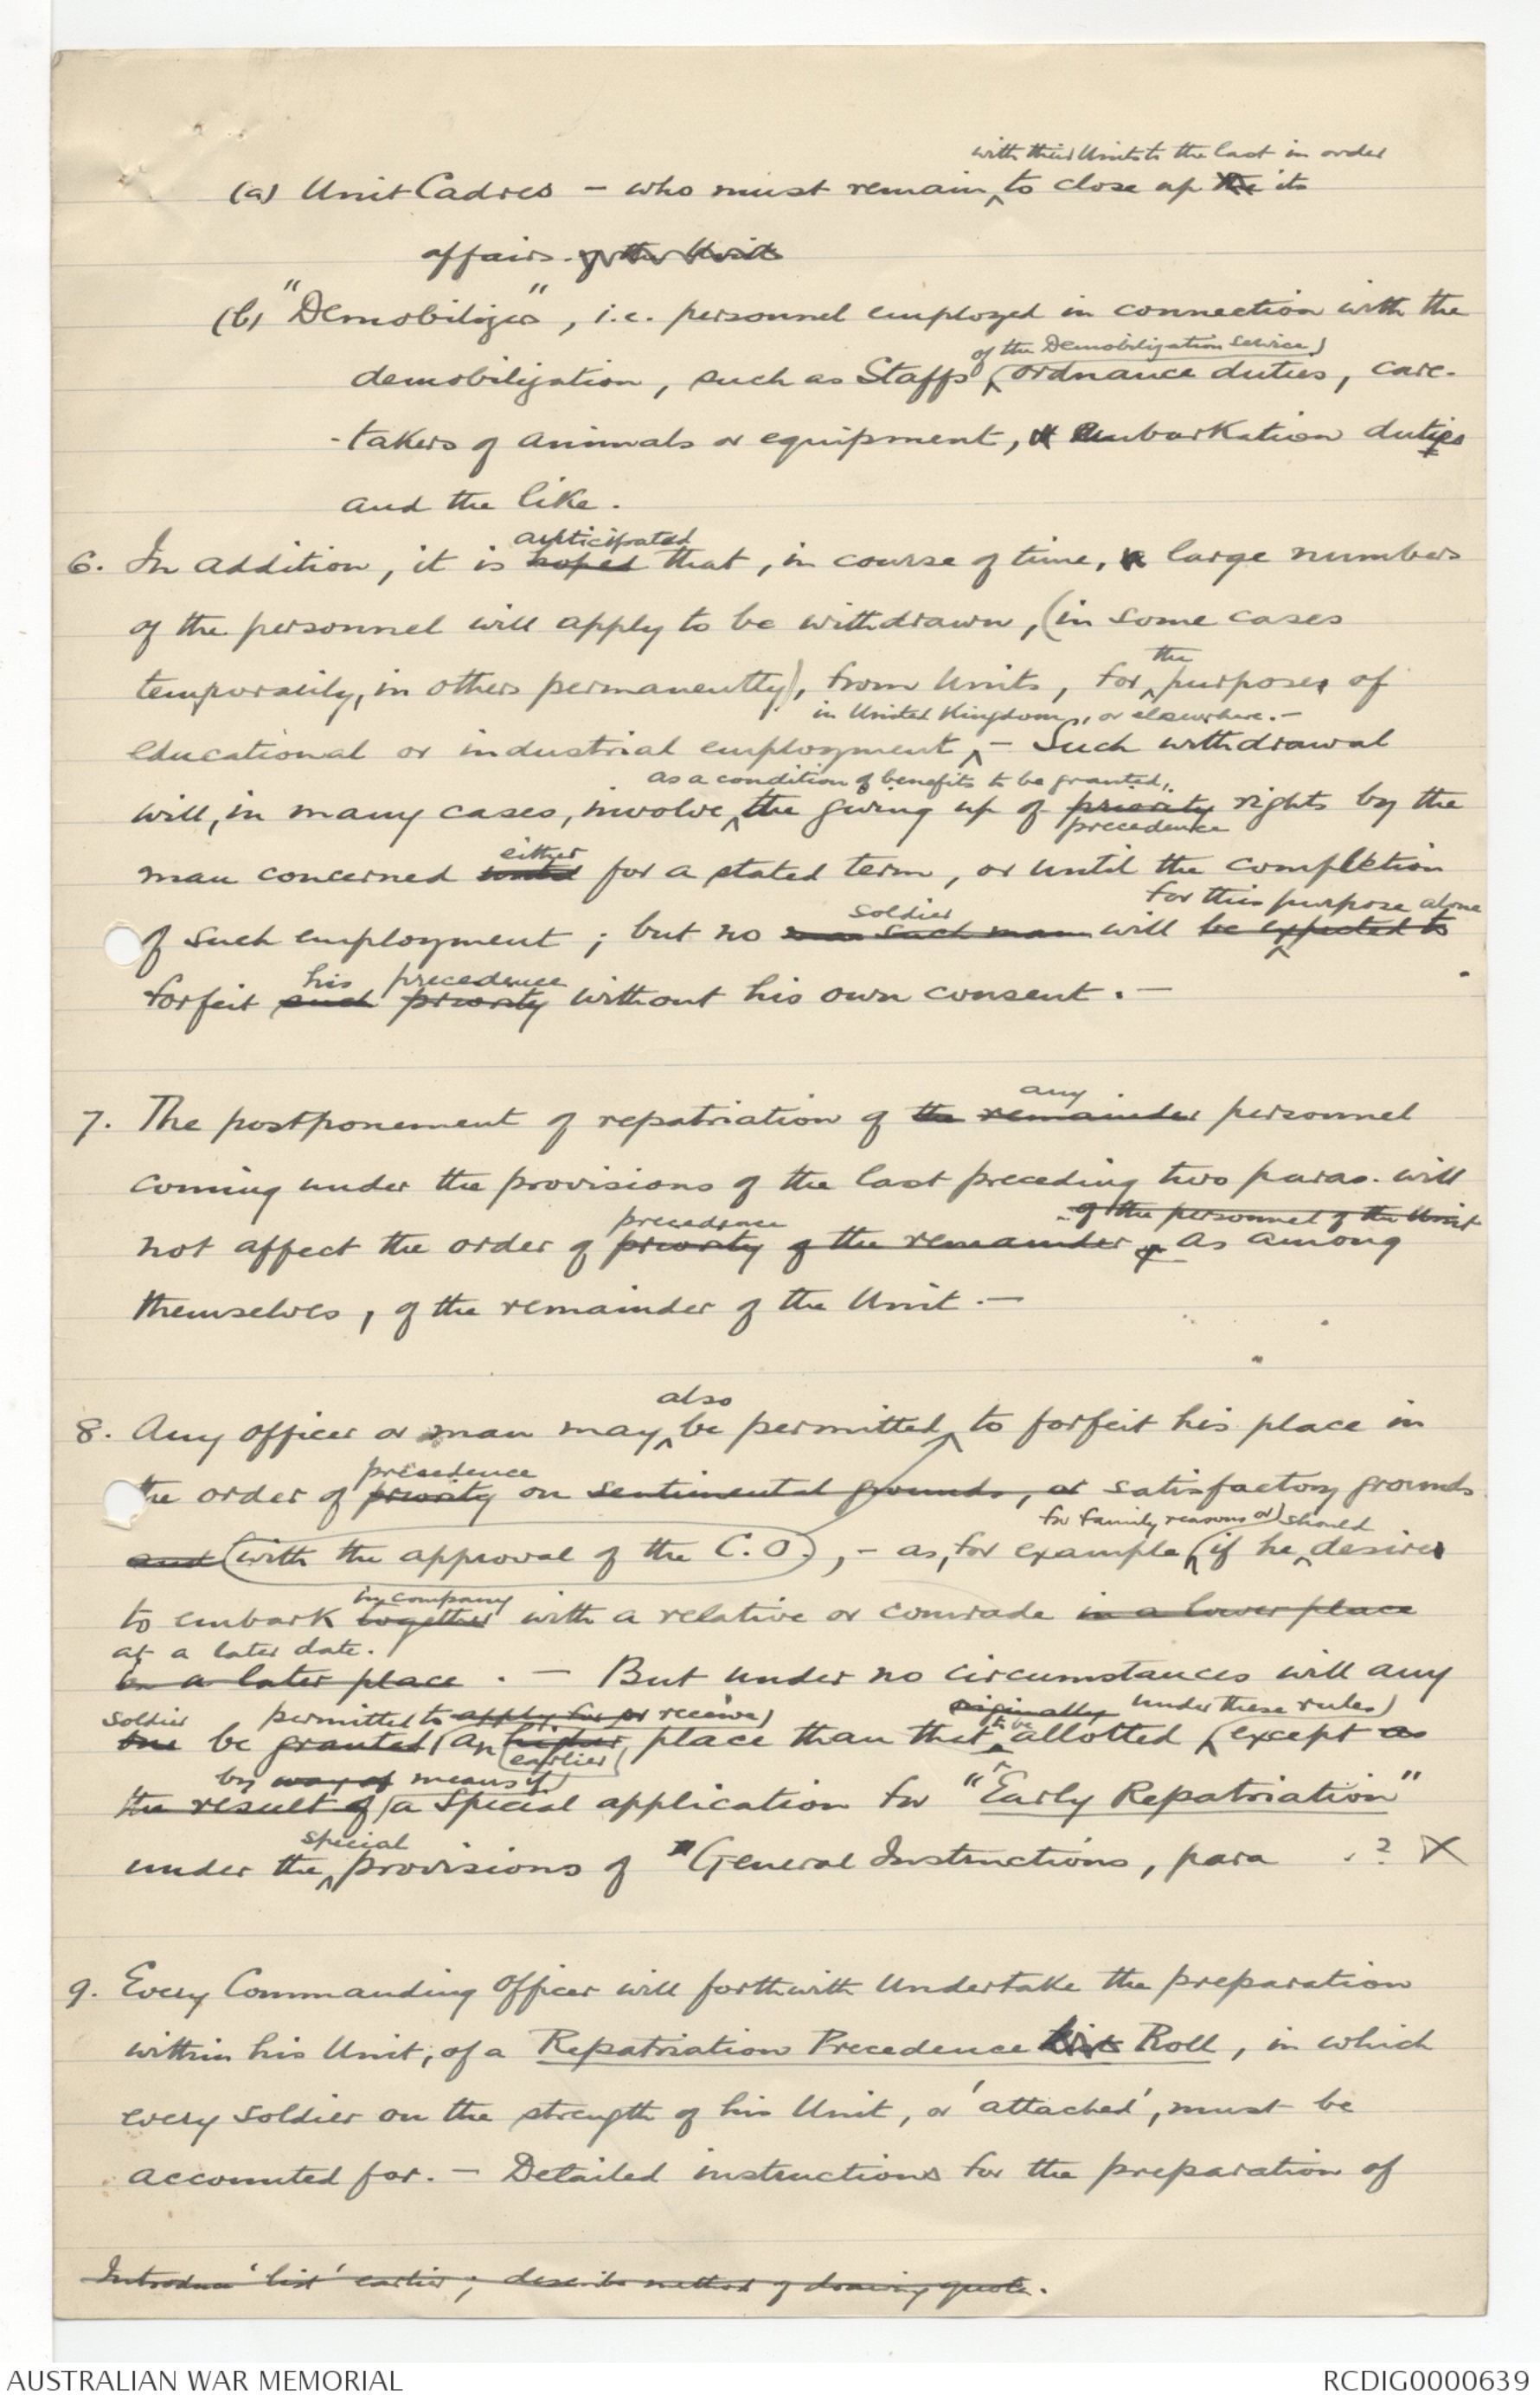 with their Units to the last in order
(a) Unit Cadres - who must remain to close up the its
affairs. of the Unit
(b) "Demobilizers", i.e. personnel employed in connection with the
of the Demobilization Service)
demobilization, such as Staffs (ordnance duties, care-
-takers of animals or equipment, embarkation duties
and the like.
anticipated
6. In addition, it is hoped that, in course of time, a large numbers
of the personnel will apply to be withdrawn, (in some cases
the
temporarily, in others permanently), from Units, for purposes of
in United Kingdom, or elsewhere.-
educational or industrial employment - Such withdrawal
as a condition of benefits to be granted,
will, in many cases, involve, the giving up of priority rights by the
precedence
either
man concerned until for a stated term, or until the completion
soldier for this purpose alone
of such employment; but no such man will be expected to
his precedence
forfeit such priority without his own consent.-
any
7. The postponement of repatriation of the remainder personnel
coming under the provisions of the last preceding two paras. will
precedence of the personnel of the Unit
not affect the order of priority of the remainder, as among
themselves, of the remainder of the Unit.-
also
8. Any officer or man may be permitted to forfeit his place in
precedence
the order of priority on sentimental grounds, or satisfactory grounds
for family reasons or) should
and (with the approval of the C.O.), - as, for example, (if he desires
in company
to embark together with a relative or comrade in a lower place
at a later date.
in a later place. - But under no circumstances will any
soldier permitted to apply for or receive) originally under these rules)
one be granted (an higher place than that allotted (except as
earlier to be
by way of means of)
the result of (a Special application for "Early Repatriation"
special
under the provisions of General Instructions, para . ? X
9. Every Commanding Officer will forthwith undertake the preparation
within his Unit, of a Repatriation Precedence List Roll, in which
every soldier on the strength of his Unit, or 'attached', must be
accounted for. - Detailed instructions for the preparation of
Introduce 'list' earlier; describe method of drawing quota.
AUSTRALIAN WAR MEMORIAL
RCDIG0000639